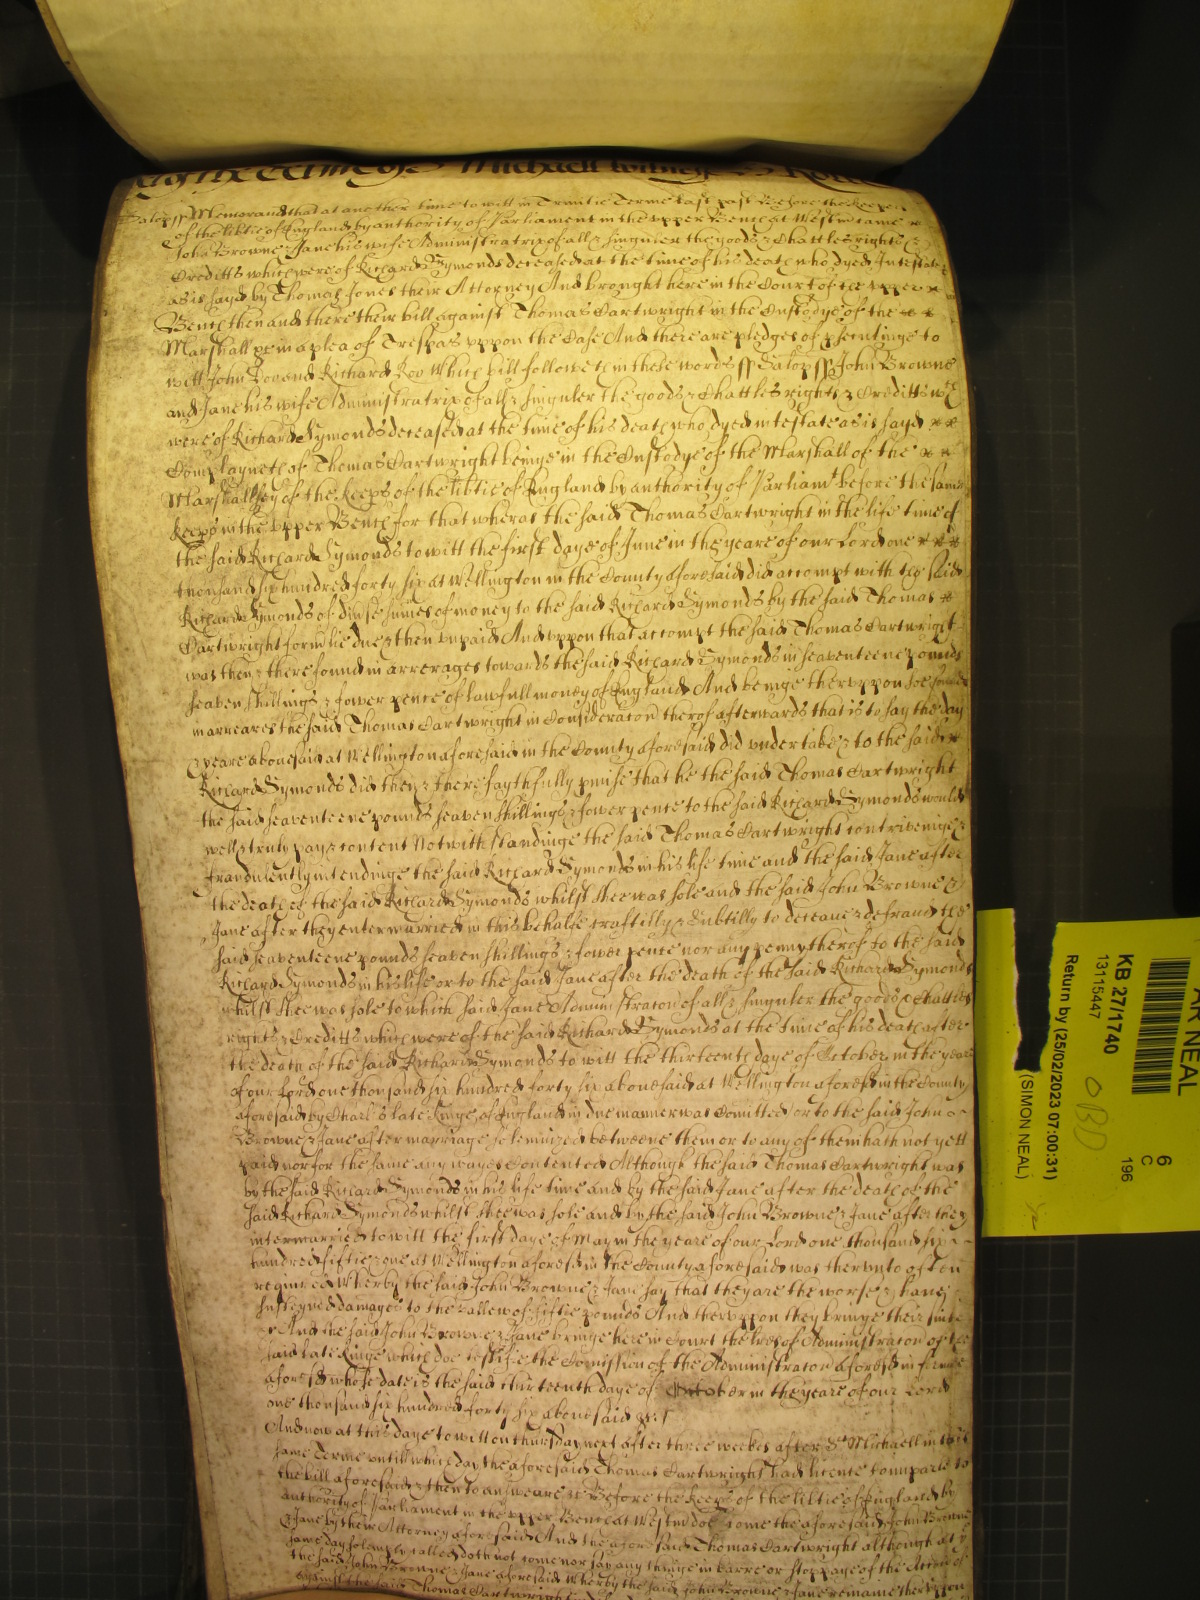 Michaell witnes Roll
Salop ss Memorand that at another time to witt in Trinitie Terme last past Before the Keepers
of the libtie of England by authority of Parliament in the upper Bench at Westm came
John Browne & Jane his wife Administratrix of all & singuler the goods & Chattles rights &
Creditts which were of Richard Symonds deceased at the time of his death who dyed Intestate
as is sayd by Thomas Jones their Attorney And brought here in the Court of the upper
Bench then and there their bill against Thomas Cartwright in the Custodye of the
Marshall &c in a plea of Trespas uppon the Case And there are pledges of psecutinge to
witt John Doe and Richard Roo Which bill followeth in these words ss Salop ss John Browne
and Jane his wife Administratrix of all & singuler the goods & Chattles rights & Creditts wch
were of Richard Symonds deceased at the time of his death who dyed intestate as is sayd
Complayneth of Thomas Cartwright beinge in the Custodye of the Marshall of the
Marshallsey of the Keeps of the libtie of England by authority of Parliamt before the same
Keeps in the upper Bench for that whereas the said Thomas Cartwright in the life time of
the said Richard Symonds to witt the first daye of June in the yeare of our Lord one
thousand six hundred forty six at Wellington in the County aforesaid did accompt with the said
Richard Symonds of divse sumes of money to the said Richard Symonds by the said Thomas
Cartwright formlie due & then unpaid And uppon that accompt the said Thomas Cartwright
was then & there found in arrerages towards the said Richard Symonds in seaventeene pounds
seaven shillings & fower pence of lawfull money of England And beinge theruppon soe found
in arreares the said Thomas Cartwright in Consideracon therof afterwards that is to say the day
& yeare abovesaid at Wellington aforesaid in the County aforesaid did undertake & to the said
Richard Symonds did then & there faythfully pmise that he the said Thomas Cartwright
the said seaventeene pounds seaven shillings & fower pence to the said Richard Symonds would
well & truly pay & content Notwithstandinge the said Thomas Cartwright contriveinge &
fraudulently intendinge the said Richard Symonds in his life time and the said Jane after
the death of the said Richard Symonds whilst shee was sole and the said John Browne &
Jane after they entermarried in this behalfe craftilly & subtilly to deceave & defraud the
said seaventeene pounds seaven shillings & fower pence nor any penny therof to the said
Richard Symonds in his life or to the said Jane after the death of the said Richard Symonds
whilst shee was sole to which said Jane Administracon of all & singuler the goods & Chattles
rights & Creditts which were of the said Richard Symonds at the time of his death after
the death of the said Richard Symonds to witt the thirteenth day of October in the yeare
of our Lord one thousand six hundred forty six abovesaid at Wellington aforesd in the County
aforesaid by Charles late Kinge of England in due manner was Comitted or to the said John
Browne & Jane after marriage solemnized betweene them or to any of them hath not yett
paid nor for the same any wayes Contented Although the said Thomas Cartwright was
by the said Richard Symonds in his life time and by the said Jane after the death of the
said Richard Symonds whilst shee was sole and by the said John Browne & Jane after they
intermarried to witt the first day of May in the yeare of our Lord one thousand six
hundred fiftie & one at Wellington aforesd in the County aforesaid was therunto often
required Wherby the said John Browne & Jane say that they are the worse & have
susteyned damages to the vallew of fiftie pounds And theruppon they bringe their suite
&c And the said John Browne & Jane bringe here in Court the lres of Administracon of the
said late Kinge which doe testifie the Comission of the Administracon aforesd in forme
aforesd whose date is the said thirteenth day of October in the yeare of our Lord
one thousand six hundred forty six abovesaid &c
And now at this daye to witt on thursday next after three weekes after St Michaell in this
same Terme untill which day the aforesaid Thomas Cartwright had licence to imparle to
the bill aforesaid & then to answeare &c Before the Keeps of the libtie of England by
authority of Parliament in the upper Bench at Westm doe come the aforesaid John Browne
& Jane by their Attorney aforesaid And the aforesaid Thomas Cartwright although at the
same day solemply called doth not come nor say any thinge in barre or stoppage of the Accon of
the said John Browne & Jane aforesaid Wherby the said John Browne & Jane remaine theruppon
against the said Thomas Cartwright
AR NEAL
KB 27/1740
13115447
Return by (25/02/2023 07:00:31)
(SIMON NEAL)
6
C
196
OBD